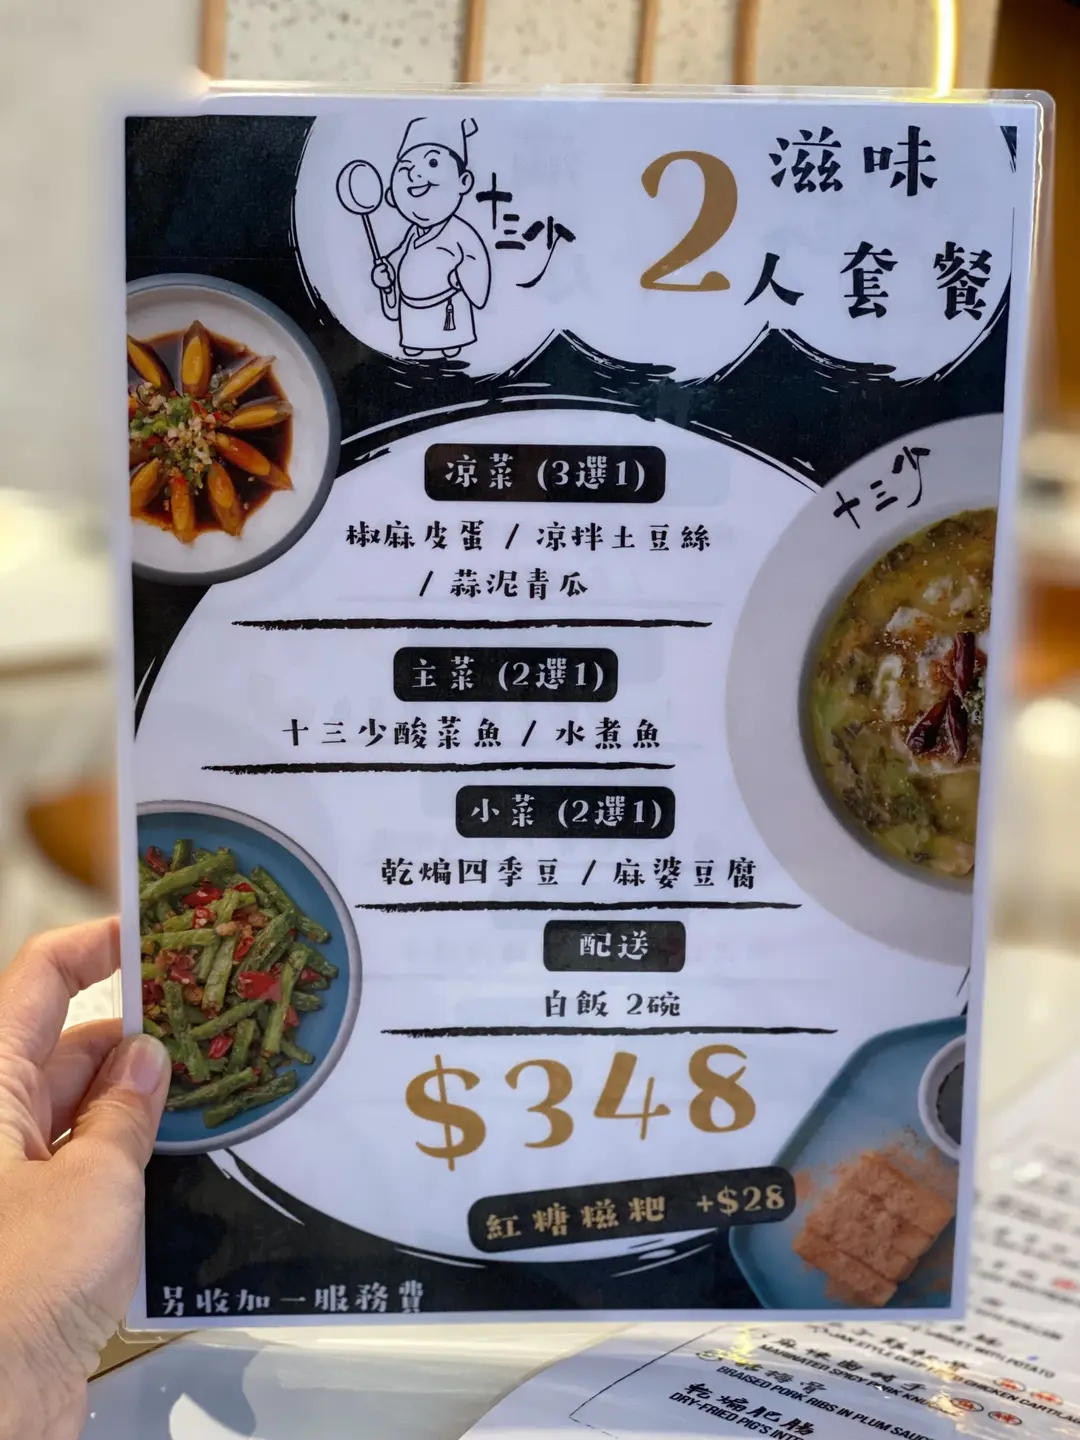 十三少
滋味
2人套餐
十三少
凉菜 (3選1)
椒麻皮蛋 / 凉拌土豆絲
/ 蒜泥青瓜
主菜 (2選1)
十三少酸菜魚 / 水煮魚
小菜 (2選1)
乾煸四季豆 / 麻婆豆腐
配送
白飯 2碗
$348
紅糖糍粑 +$28
另收加一服務費
BRAISED PORK RIBS IN PLUM
乾煸肥腸
DRY-FRIED PIG'S